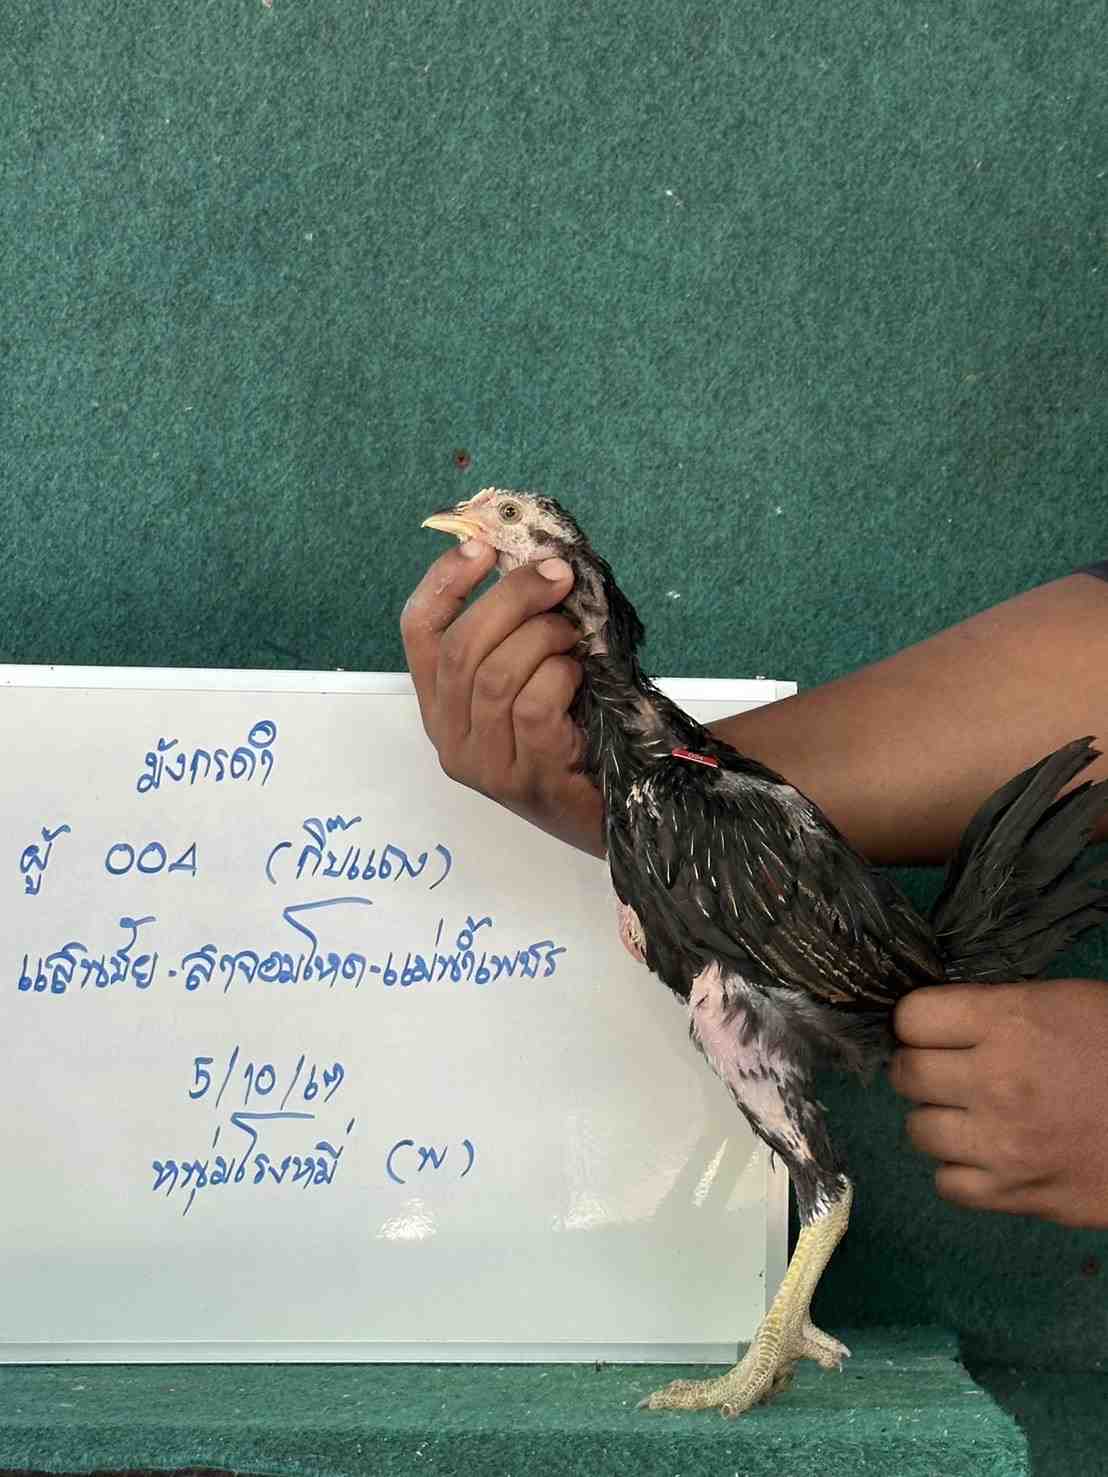 มังกรดำ
ผู้ 004 (กิ๊บแดง)
แสนชัย-ลาจอมโหด-แม่น้ำเพชร
5/10/
หนุ่มโรงหมี่ (พ)
004